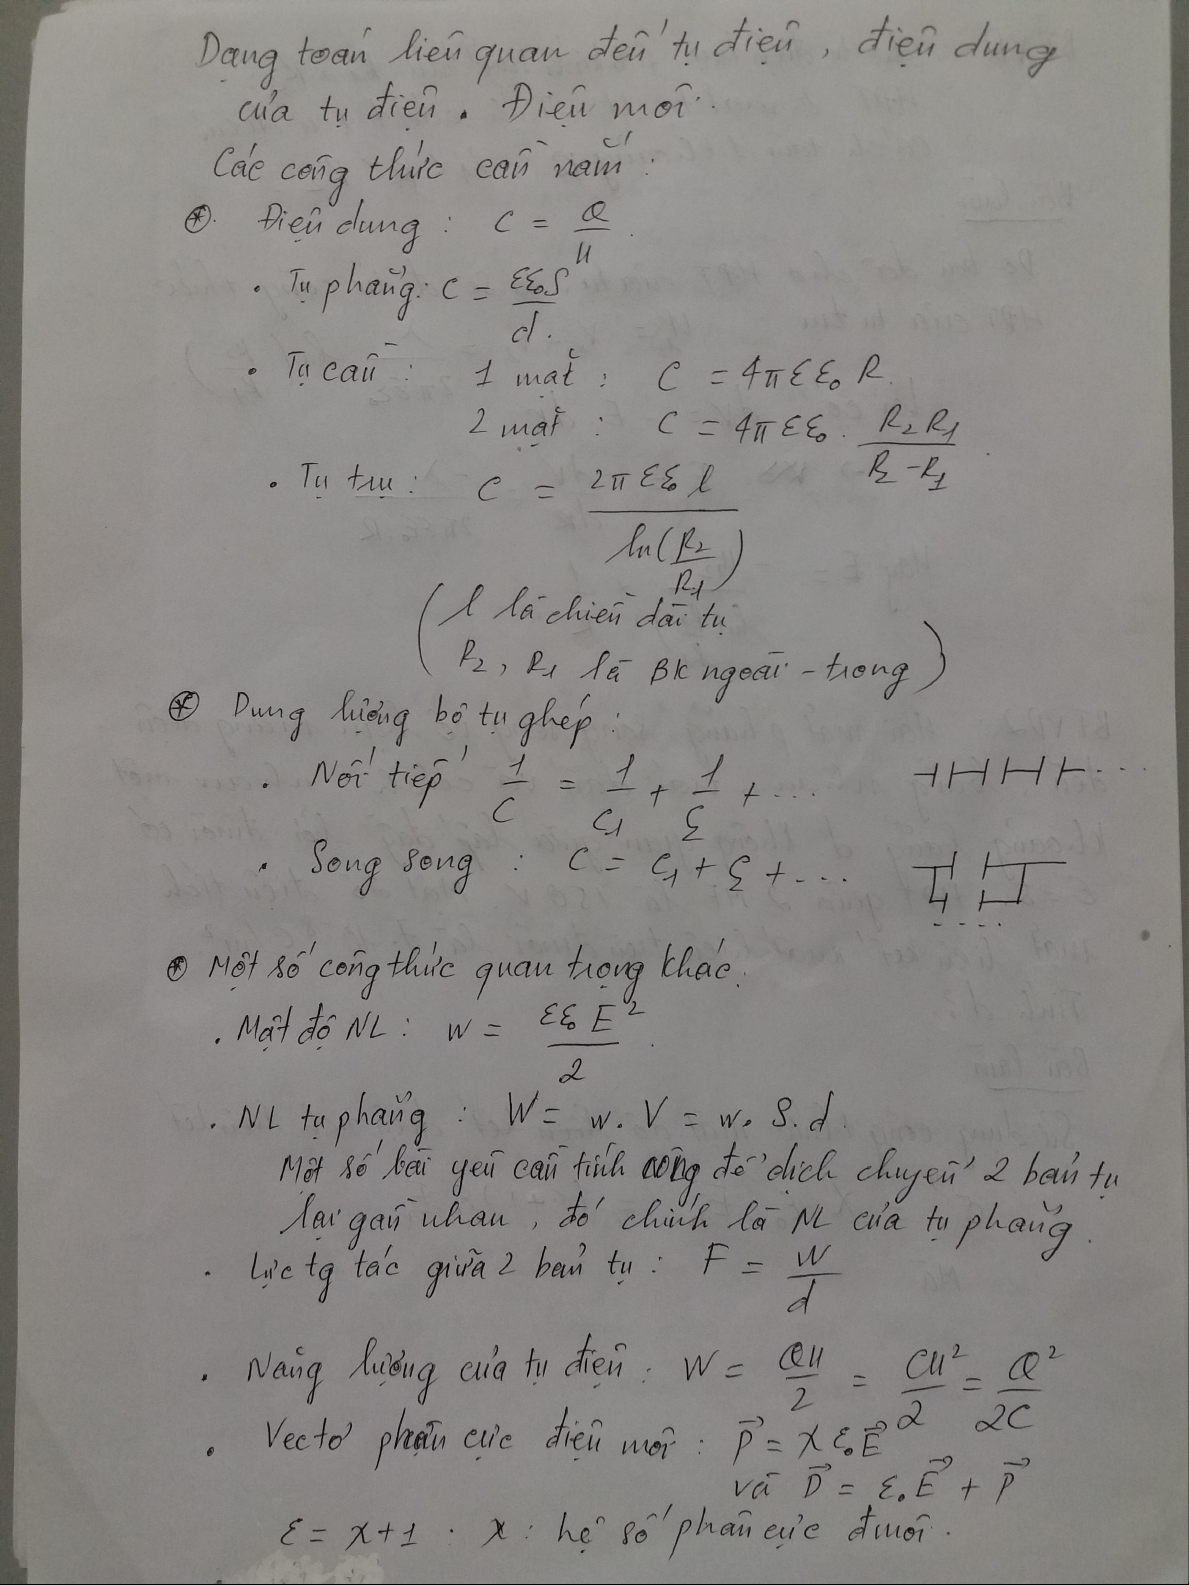 Dạng toán liên quan đến tụ điện, điện dung
của tụ điện. Điện môi.
Các công thức cần nắm:
⊛. Điện dung: C = Q/U.
• Tụ phẳng: C = εε₀S/d.
• Tụ cầu: 1 mặt: C = 4πεε₀R.
2 mặt: C = 4πεε₀. R₂R₁/(R₂-R₁).
• Tụ trụ: C = 2πεε₀l/ln(R₂/R₁)
(l là chiều dài tụ
R₂, R₁ là BK ngoài - trong)
⊛ Dung lượng bộ tụ ghép:
• Nối tiếp 1/C = 1/C₁ + 1/C₂ + ...
• Song song: C = C₁ + C₂ + ...
⊛ Một số công thức quan trọng khác:
• Mật độ NL: w = εε₀E²/2.
• NL tụ phẳng: W = w. V = w. S. d.
Một số bài yêu cầu tính công để dịch chuyển 2 bản tụ
lại gần nhau, đó chính là NL của tụ phẳng.
• Lực tg tác giữa 2 bản tụ: F = W/d
• Năng lượng của tụ điện: W = QU/2 = CU²/2 = Q²/2C
• Vectơ phân cực điện môi: P⃗ = χε₀E⃗
và D⃗ = ε₀E⃗ + P⃗
ε = χ+1. χ: hệ số phân cực đmôi.